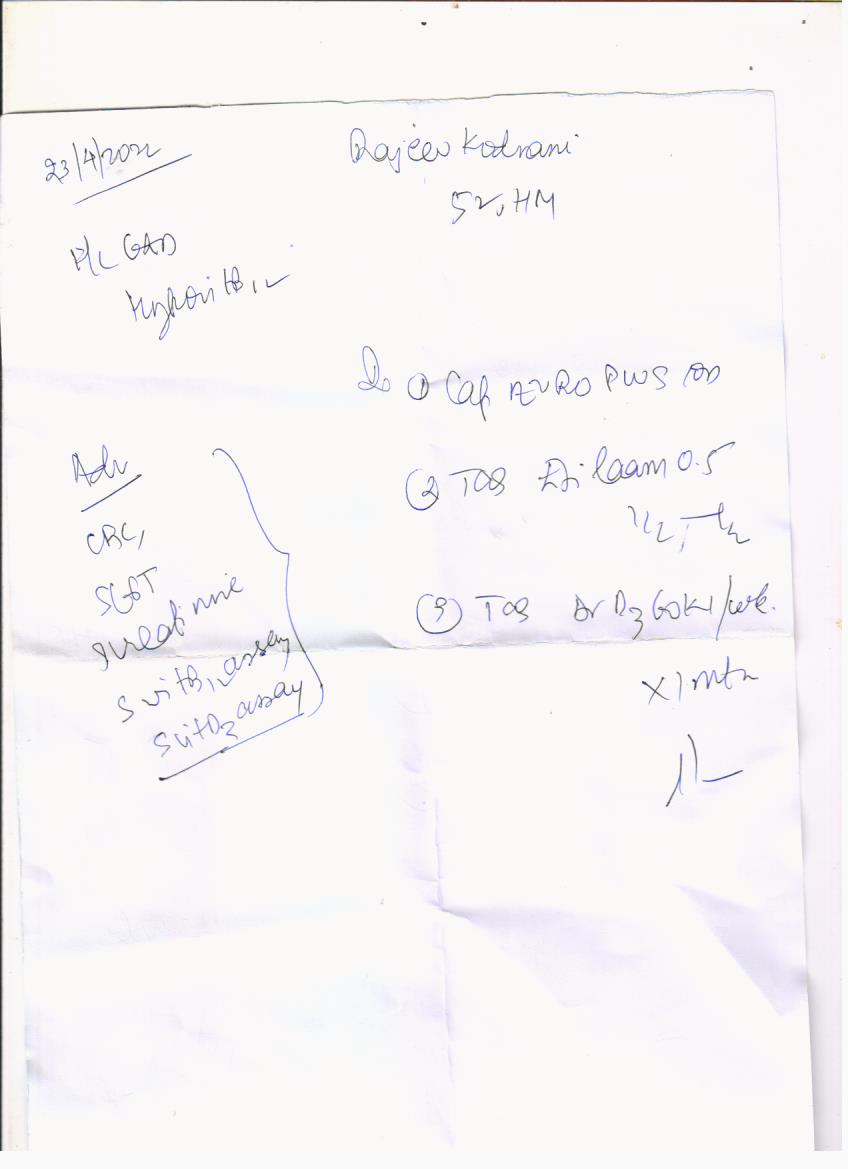 23/4/2022
Rajeev Kodnani
52, HM
GAD
Hypovit B12
① Cap AZURO PLUS OD
② TAB Etilaam 0.5
1/2, - 1/2
③ TAB D3 60K /wk.
X 1 mth
Adv
CBC,
SGOT
S creatinine
S vit B12 assay
S vit D3 assay